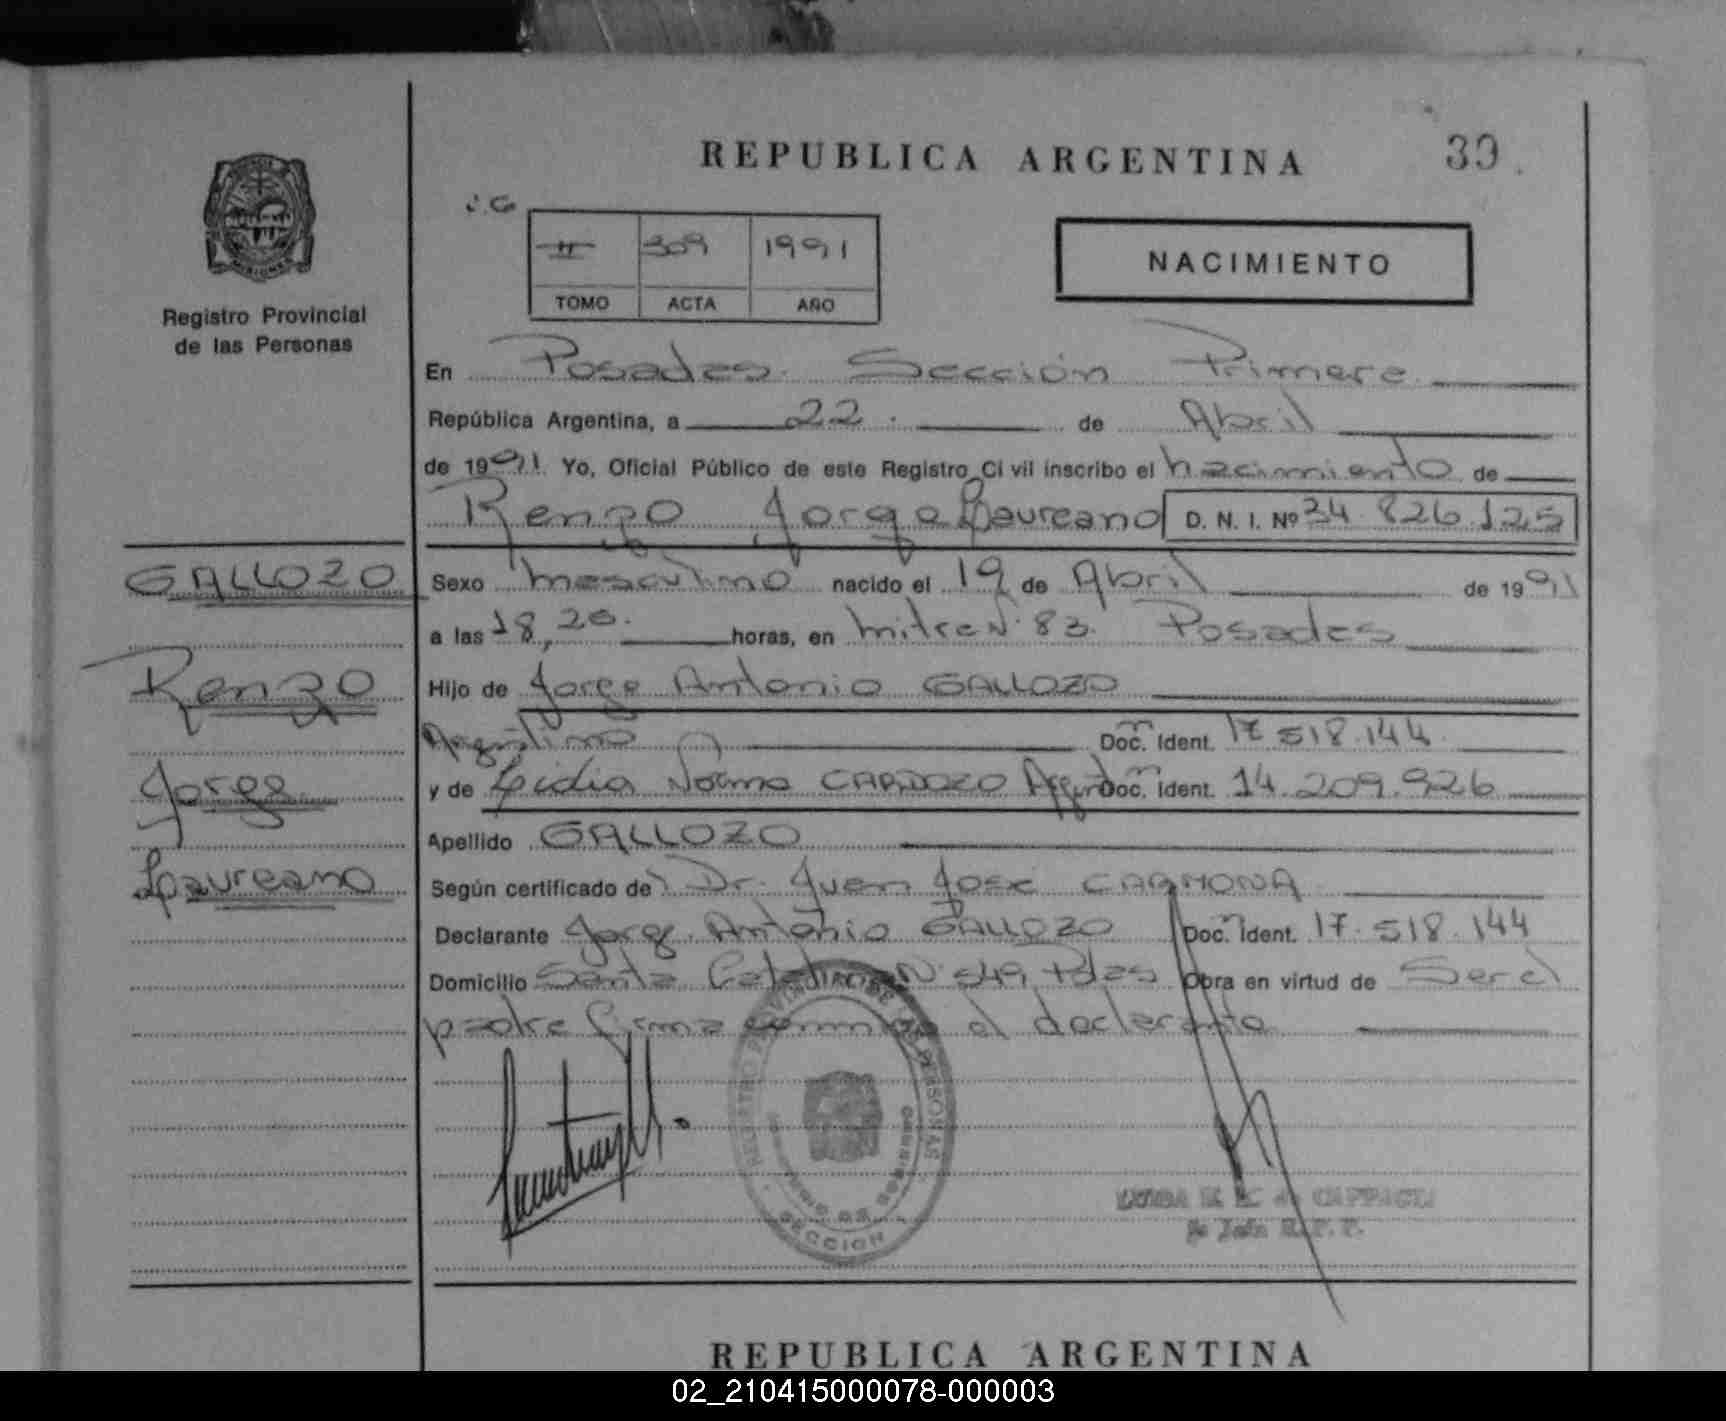 REPUBLICA ARGENTINA
39
II 309 1991
TOMO ACTA AÑO
NACIMIENTO
MISIONES
Registro Provincial
de las Personas
En Posadas Sección Primera
República Argentina, a 22 de Abril
de 1991 Yo, Oficial Público de este Registro Civil inscribo el nacimiento de
Renzo Jorge Laureano D. N. I. Nº 34.826.125
GALLOZO
Renzo
Jorge
Laureano
Sexo masculino nacido el 19 de Abril de 1991
a las 18,20. horas, en mitre Nº 83. Posadas
Hijo de Jorge Antonio GALLOZO
Argentino Doc. Ident. 17.518.144
y de Lidia Norma CARDOZO Argent Doc. Ident. 14.209.926
Apellido GALLOZO
Según certificado del Dr. Juan José CARMONA
Declarante Jorge Antonio GALLOZO Doc. Ident. 17.518.144
Domicilio Santa Catalina Nº 549 Pdas Obra en virtud de Ser el
padre firma conmigo el declarante
REGISTRO PROVINCIAL DE LAS PERSONAS
SECCION
REPUBLICA ARGENTINA
02_210415000078-000003